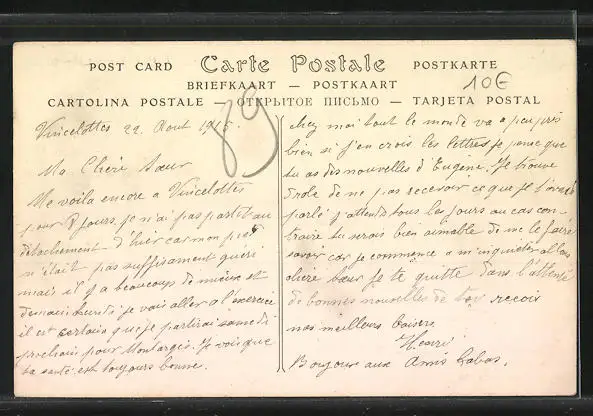 POST CARD Carte Postale POSTKARTE
BRIEFKAART — POSTKAART
10€
CARTOLINA POSTALE — ОТКРЫТОЕ ПИСЬМО — TARJETA POSTAL
89
Vincelottes 22. Aout 1915.
Ma Chère Sœur
Me voila encore a Vincelottes
pour 8 jours, je n'ai pas partet au
détachement d'hier car mon pied
n'était pas suffisament guéri
mais il y a beaucoups de mieux et
demain lundi je vais aller a l'exercice
il est certain que je partirai samedi
prochain pour Montargis. Je vois que
ta santé est toujours bonne.
chez moi tout le monde va a peu près
bien si j'en crois les lettres je pense que
tu as des nouvelles d'Eugène. Je trouve
drole de ne pas recevoir ce que je t'avais
parlé j'attends tous les jours au cas con-
traire tu serais bien aimable de me le faire
savoir car je commence a m'inquieter
chère sœur je te quitte dans l'attente
de bonnes nouvelles de toi reçois
nos meilleurs baisers.
Henri
Bonjour aux Amis